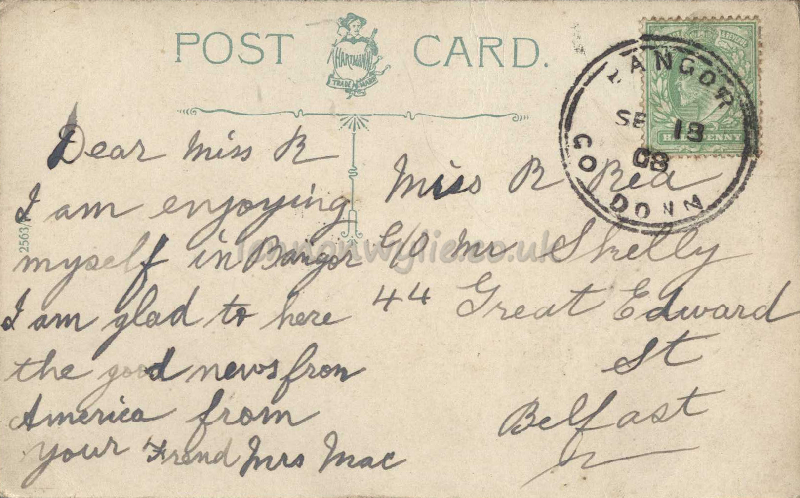 POST CARD.
HARTMANN
TRADE MARK
BANGOR
SE 18
08
CO DOWN
HALFPENNY
Dear Miss R
I am enjoying
myself in Bangor
I am glad to here
the good news fron
America from
your Frend Mrs Mac
Miss R Rea
C/O Mr Skelly
44 Great Edward
St
Belfast
2563/
lennonwylie.co.uk